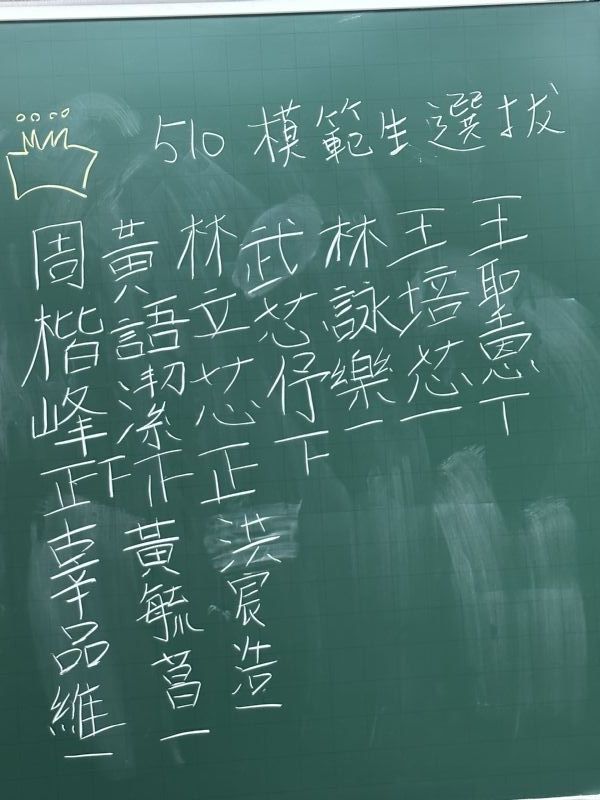 510 模範生選拔
王聖恩 丅
王培芯 一
林詠樂 一
武芯伃 下
林立芯 正
黃語潔
周楷峰 正下
洪宸浩 一
黃毓菖 一
辜品維 一